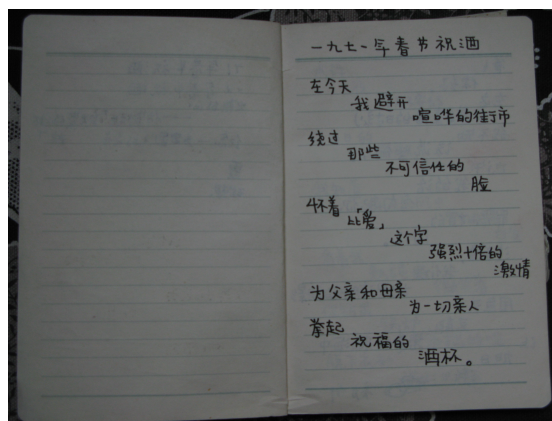 一九七一年春节祝酒
在今天
我避开
喧哗的街市
绕过
那些
不可信任的
脸
怀着
比「爱」
这个字
强烈十倍的
激情
为父亲和母亲
为一切亲人
举起
祝福的
酒杯。